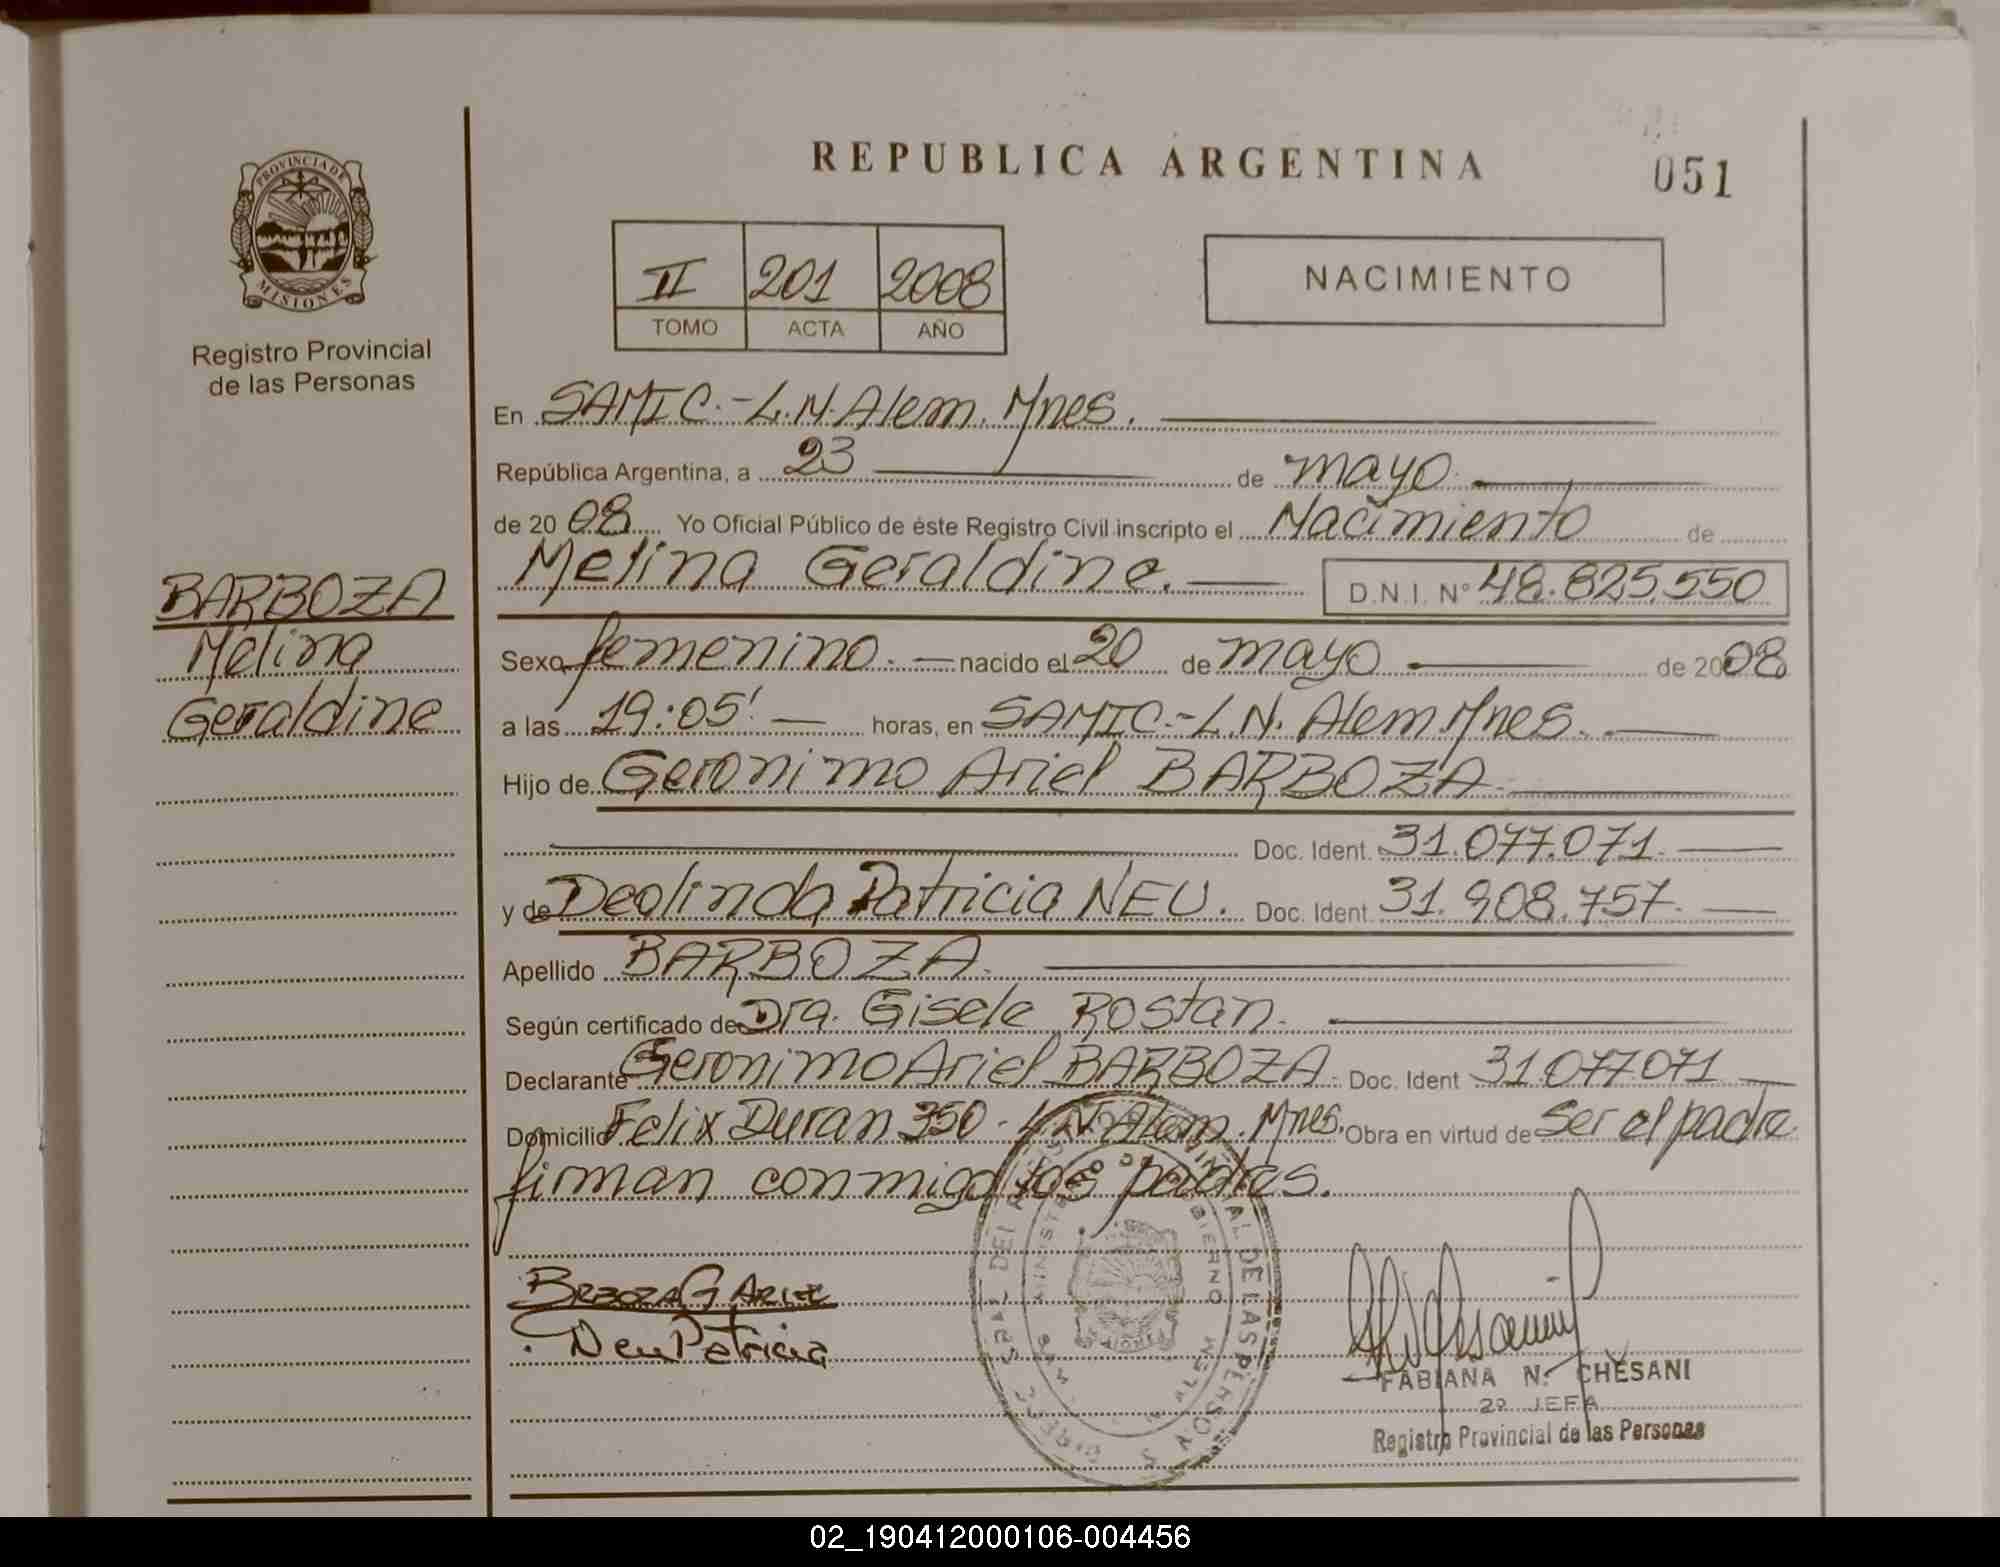 REPUBLICA ARGENTINA
051
PROVINCIA DE
MISIONES
Registro Provincial
de las Personas
II 201 2008
TOMO ACTA AÑO
NACIMIENTO
En SAMIC.-L.N.Alem.Mnes.
República Argentina, a 23 de mayo
de 20 08 Yo Oficial Público de éste Registro Civil inscripto el Nacimiento de
Melina Geraldine. D.N.I. N° 48.825.550
BARBOZA
Melina
Geraldine
Sexo femenino. nacido el 20 de mayo de 2008
a las 19:05' horas, en SAMIC.-L.N. Alem Mnes.
Hijo de Geronimo Ariel BARBOZA
Doc. Ident. 31.077.071.
y de Deolinda Patricia NEU. Doc. Ident. 31.908.757.
Apellido BARBOZA.
Según certificado de Dra. Gisele Rostan.
Declarante Geronimo Ariel BARBOZA. Doc. Ident 31.077.071
Domicilio Felix Duran 350. L.N. Alem. Mnes. Obra en virtud de ser el padre.
firman conmigo los padres.
Neu Patricia
FABIANA N. CHESANI
2º JEFA
Registro Provincial de las Personas
02_190412000106-004456